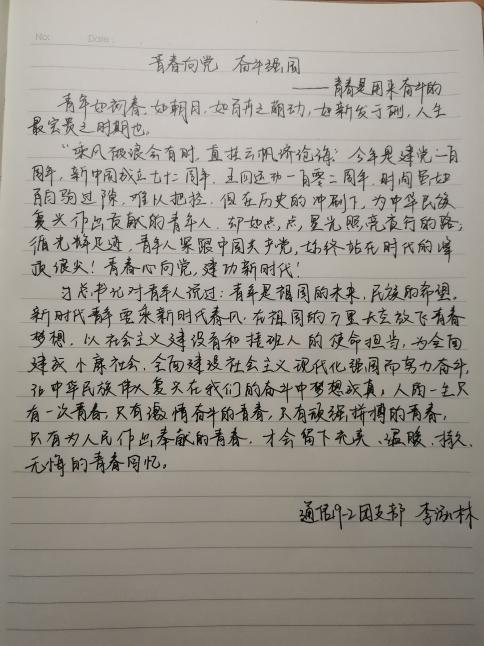 No:
Date:
青春向党 奋斗强国
——青春是用来奋斗的
青年如初春,如朝日,如百卉之萌动,如新发于硎,人生
最宝贵之时期也。
“乘风破浪会有时,直挂云帆济沧海”今年是建党一百
周年,新中国成立七十二周年,五四运动一百零二周年,时间宛如
白驹过隙,难以把控,但在历史的冲刷下,为中华民族
复兴作出贡献的青年人,却如点点星光照亮夜行的路;
循光辉足迹,青年人紧跟中国共产党,始终站在时代的峰
顶浪尖!青春心向党,建功新时代!
习总书记对青年人说过:青年是祖国的未来,民族的希望。
新时代青年要乘新时代春风,在祖国的万里长空放飞青春
梦想,以社会主义建设者和接班人的使命担当,为全面
建成小康社会,全面建设社会主义现代化强国而努力奋斗,
让中华民族伟大复兴在我们的奋斗中梦想成真,人的一生只
有一次青春,只有激情奋斗的青春,只有顽强拼搏的青春,
只有为人民作出奉献的青春,才会留下充实、温暖、持久、
无悔的青春回忆。
通信19-2团支部 李 林